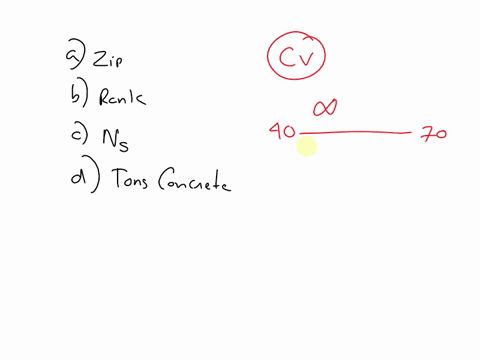 a) Zip
b) Rank
c) Ns
d) Tons Concrete
CV
∞
40 70